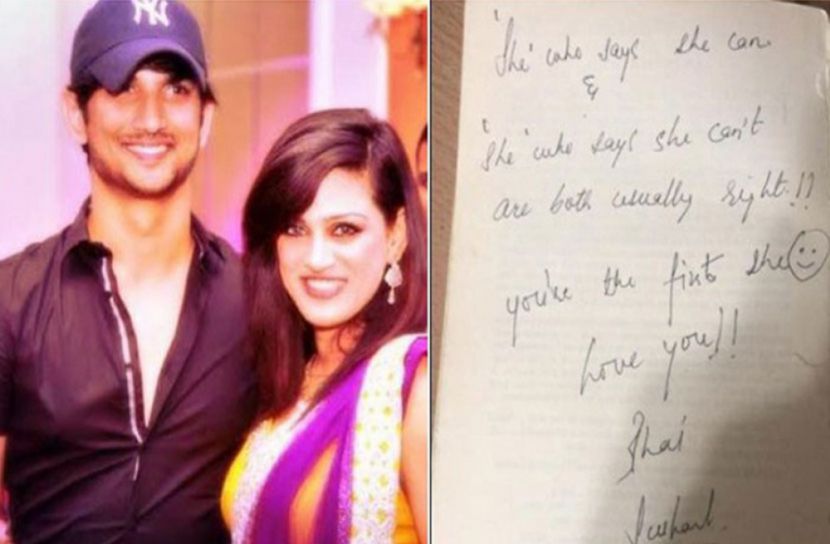 NY
'She' who says she can
&
'She' who says she can't
are both usually right!!
you're the first she
Love you!!
Bhai
Sushant.